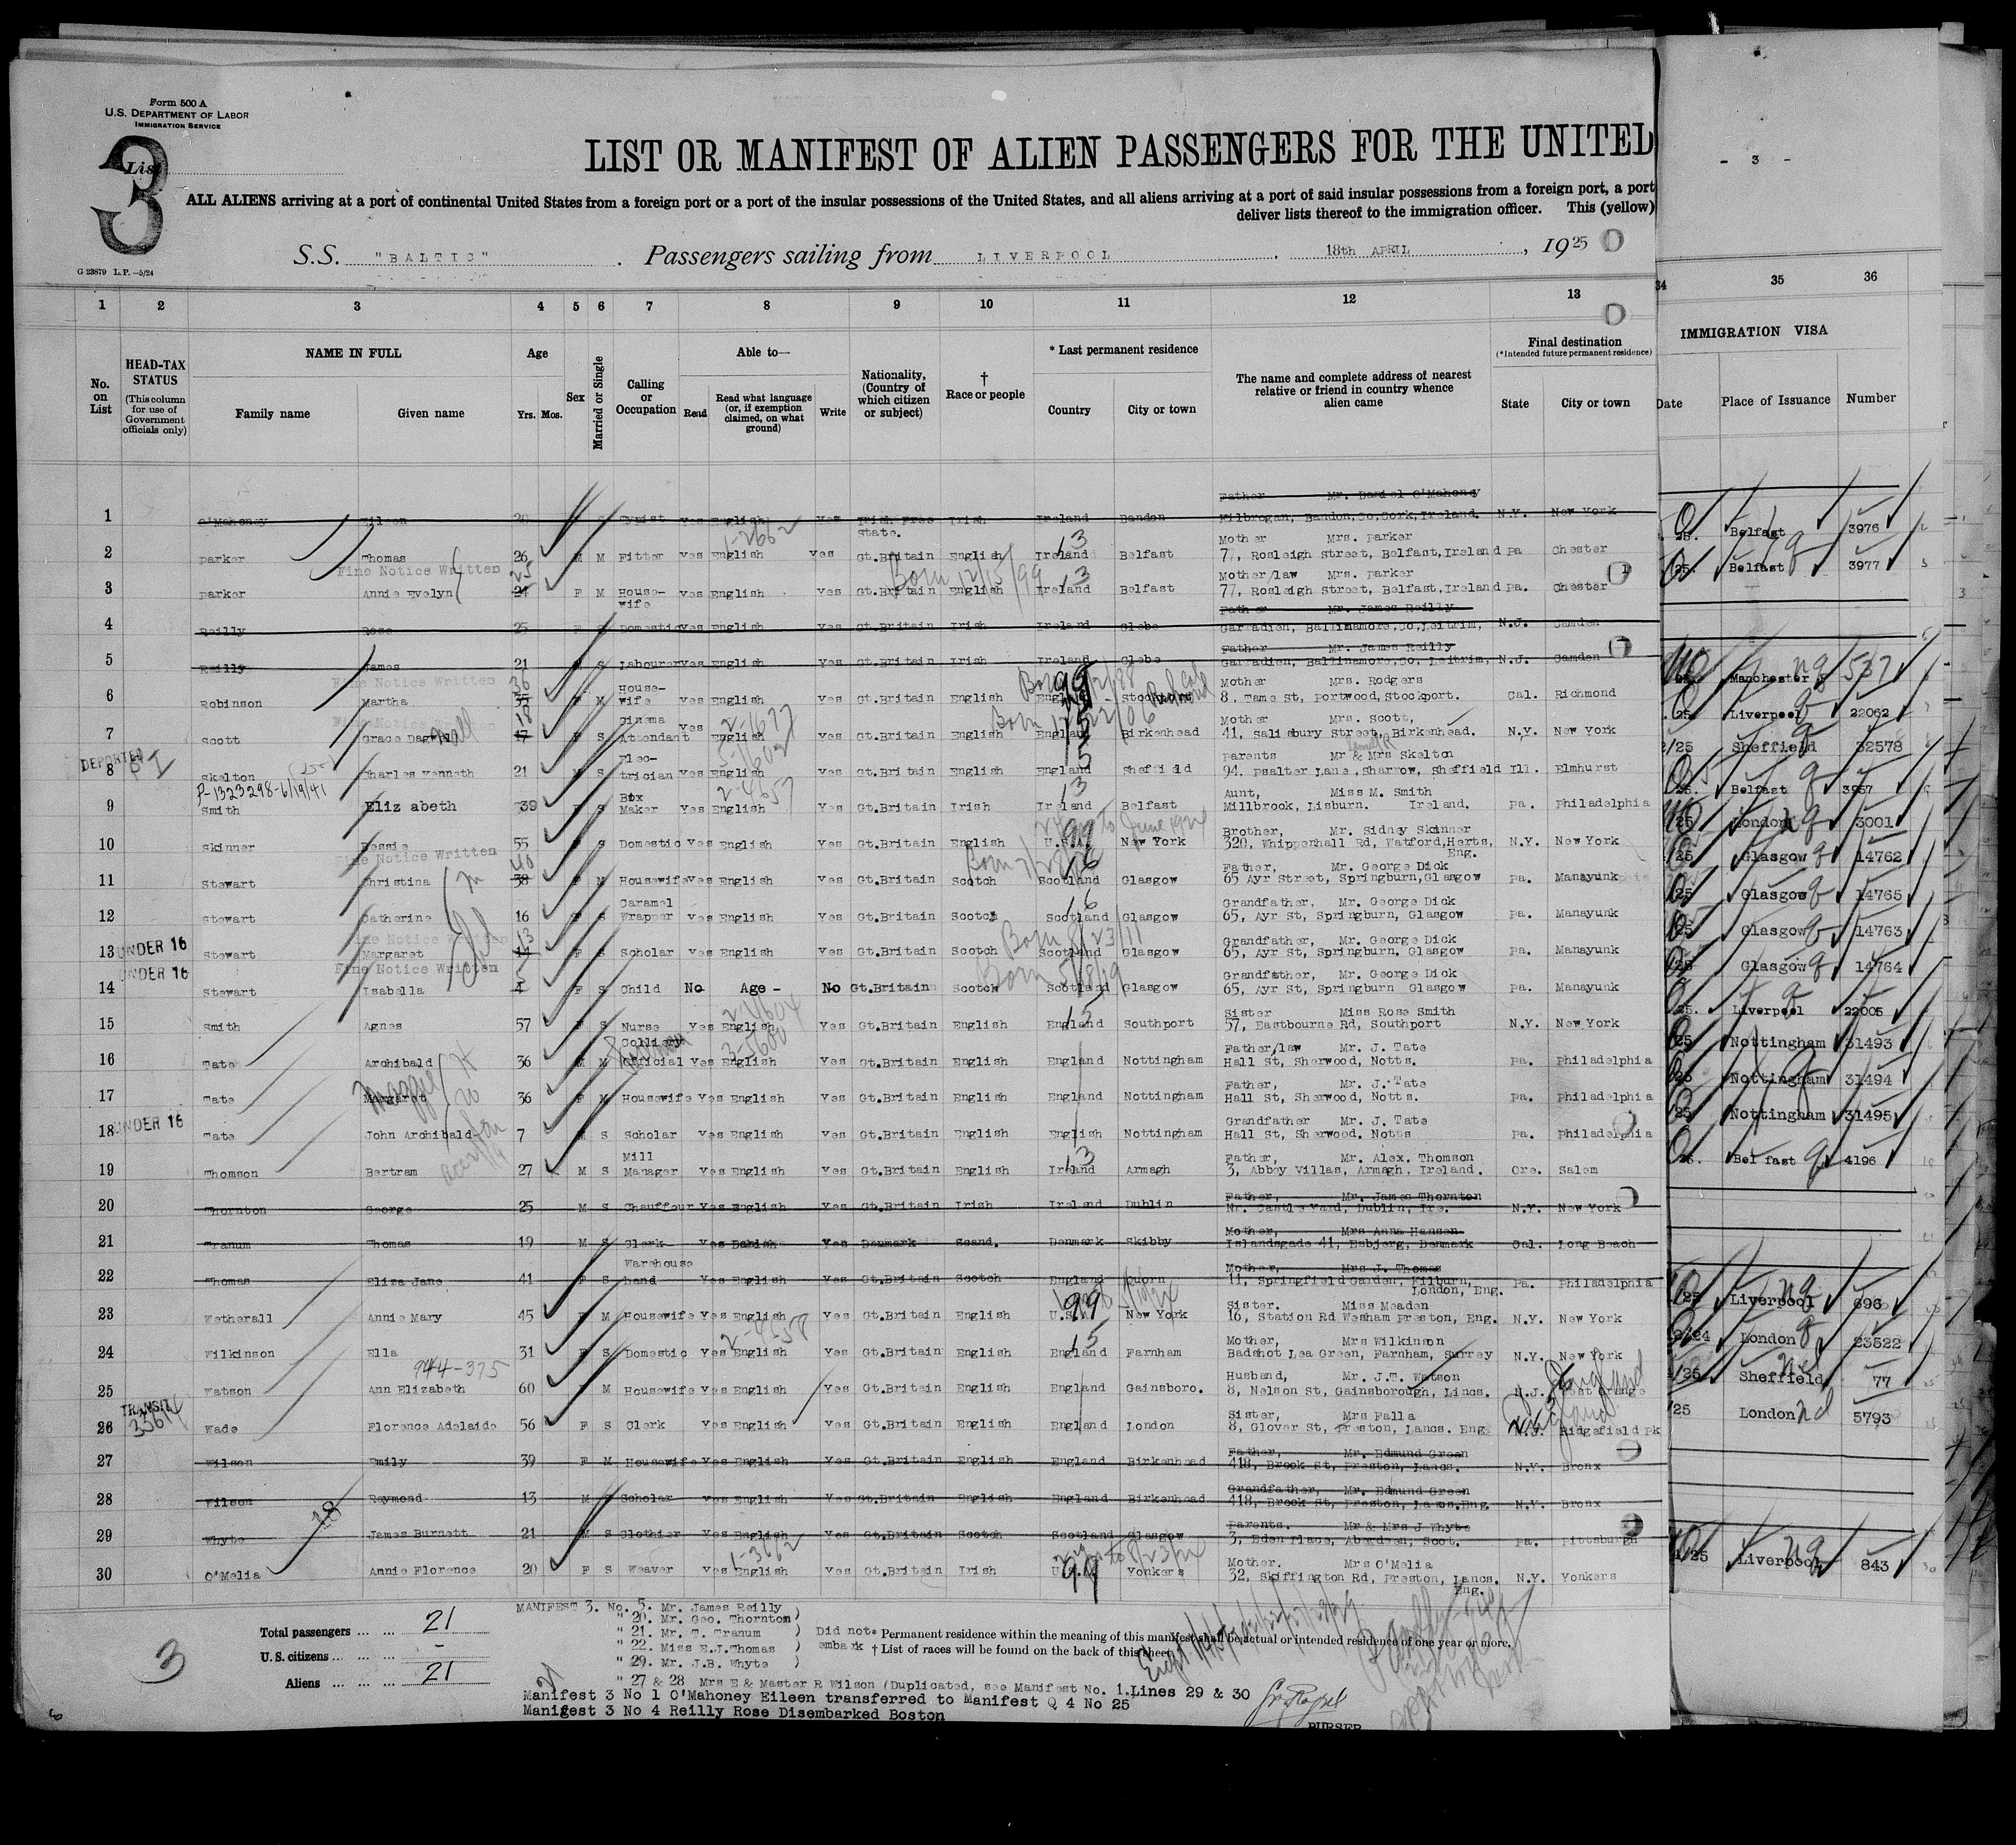 Form 500 A
U.S. DEPARTMENT OF LABOR
IMMIGRATION SERVICE
List
3
LIST OR MANIFEST OF ALIEN PASSENGERS FOR THE UNITED
- 3 -
ALL ALIENS arriving at a port of continental United States from a foreign port or a port of the insular possessions of the United States, and all aliens arriving at a port of said insular possessions from a foreign port, a port
deliver lists thereof to the immigration officer. This (yellow)
S.S. "BALTIC" . Passengers sailing from LIVERPOOL . 18th APRIL , 1925
G 23879 L.P.—5/24
1 2 3 4 5 6 7 8 9 10 11 12 13 34 35 36
No. on List
HEAD-TAX STATUS
(This column for use of Government officials only)
NAME IN FULL
Family name Given name
Age
Yrs. Mos.
Sex
Married or Single
Calling or Occupation
Able to—
Read
Read what language (or, if exemption claimed, on what ground)
Write
Nationality. (Country of which citizen or subject)
† Race or people
* Last permanent residence
Country City or town
The name and complete address of nearest relative or friend in country whence alien came
Final destination
(*Intended future permanent residence)
State City or town
IMMIGRATION VISA
Date Place of Issuance Number
Father Mr. Daniel O'Mahoney
1 O'Mahoney Eileen 20 S Typist Yes English Yes Irish Free State. Irish Ireland Bandon Kilbrogan, Bandon, Co, Cork, Ireland. N.Y. New York
1-2662
Mother Mrs. Parker
2 Parker Thomas 26 M M Fitter Yes English Yes Gt.Britain English Ireland 13 Belfast 77, Rosleigh Street, Belfast, Ireland Pa Chester 25. Belfast 3976
Fine Notice Written 25 Born 12/15/99
Mother/law Mrs. Parker
3 Parker Annie Evelyn 24 F M House-wife Yes English Yes Gt.Britain English Ireland 13 Belfast 77, Rosleigh Street, Belfast, Ireland Pa. Chester /25. Belfast 3977
Father Mr. James Reilly
4 Reilly Rose 25 F S Domestic Yes English Yes Gt.Britain Irish Ireland Glebe Garradien, Ballinamore, Co, Leitrim, N.J. Camden
Father Mr. James Reilly
5 Reilly James 21 M S Labourer Yes English Yes Gt.Britain Irish Ireland Glebe Garradien, Ballinamore, Co, Leitrim, N.J. Camden
Fine Notice Written 36
Mother Mrs. Rodgers
6 Robinson Martha 35 F M House-wife Yes English Yes Gt.Britain English England 99 Stockport 8, Tame St, Portwood, Stockport. Cal. Richmond Manchester 537
Fine Notice Written 18 2-4677
Mother Mrs. Scott,
7 Scott Grace 17 F S Cinema Attendant Yes English Yes Gt.Britain English England 15 Birkenhead 41, Salisbury Street, Birkenhead. N.Y. New York .25 Liverpool 22062
DEPORTED
Parents Mr & Mrs Skelton
8 Skelton Charles Kenneth 21 M S Elec-trician Yes English Yes Gt.Britain English England 15 Sheffield 94. Psalter Lane, Sharrow, Sheffield Ill. Elmhurst /25 Sheffield 32578
P-1323298-6/19/41 2-4657
Aunt, Miss M. Smith
9 Smith Eliz abeth 39 F S Box Maker Yes English Yes Gt.Britain Irish Ireland 13 Belfast Millbrook, Lisburn. Ireland. Pa. Philadelphia 25. Belfast 3957
to June 1924
Brother, Mr. Sidney Skinner
10 Skinner Bessie 55 F S Domestic Yes English Yes Gt.Britain English U.S.A. 99 New York 320, Whippenhall Rd, Watford, Herts, Eng. N.Y. New York 25 London 3001
Fine Notice Written 40
Father, Mr. George Dick
11 Stewart Christina 38 F M Housewife Yes English Yes Gt.Britain Scotch Scotland 16 Glasgow 65 Ayr Street, Springburn, Glasgow Pa. Manayunk /25 Glasgow 14762
Grandfather, Mr. George Dick
12 Stewart Catherine 16 F S Caramel Wrapper Yes English Yes Gt.Britain Scotch Scotland 16 Glasgow 65, Ayr St, Springburn, Glasgow Pa. Manayunk /25 Glasgow 14765
Fine Notice Written 13 Born 8/23/11
Grandfather, Mr. George Dick
13 UNDER 16 Stewart Margaret 14 F S Scholar Yes English Yes Gt.Britain Scotch Scotland Glasgow 65, Ayr St, Springburn. Glasgow Pa. Manayunk /25 Glasgow 14763
Fine Notice Written 5 Born 5/18/19
Grandfather, Mr. George Dick
14 UNDER 16 Stewart Isabella 4 F S Child No Age - No Gt.Britain Scotch Scotland Glasgow 65, Ayr St, Springburn Glasgow Pa. Manayunk /25 Glasgow 14764
2-4604
Sister Miss Rose Smith
15 Smith Agnes 57 F S Nurse Yes English Yes Gt.Britain English England 15 Southport 57, Eastbourne Rd, Southport N.Y. New York 25. Liverpool 22005
3-5600
Father/law Mr. J. Tate
16 Tate Archibald 36 M M Colliery Official Yes English Yes Gt.Britain English England Nottingham Hall St, Sherwood, Notts. Pa. Philadelphia 25 Nottingham 31493
Maggie
Father, Mr. J. Tate
17 Tate Margaret 36 F M Housewife Yes English Yes Gt.Britain English England Nottingham Hall St, Sherwood, Notts. Pa. Philadelphia /25 Nottingham 31494
Grandfather Mr. J. Tate
18 UNDER 16 Tate John Archibald 7 M S Scholar Yes English Yes Gt.Britain English English Nottingham Hall St, Sherwood. Notts Pa. Philadelphia /25 Nottingham 31495
Father, Mr. Alex. Thomson
19 Thomson Bertram 27 M S Mill Manager Yes English Yes Gt.Britain English Ireland 13 Armagh 3, Abbey Villas, Armagh, Ireland. Ore. Salem 25. Belfast 4196
Father, Mr. James Thornton
20 Thornton George 25 M S Chauffeur Yes English Yes Gt.Britain Irish Ireland Dublin Nr. Castle Yard, Dublin, Ire. N.Y. New York
Mother, Mrs Anna Hansen
21 Tranum Thomas 19 M S Clerk Yes Danish Yes Denmark Scand. Denmark Skibby Islandsgade 41, Esbjerg, Denmark Cal. Long Beach
Mother, Mrs J. Thomas
22 Thomas Eliza Jane 41 F S Warehouse hand Yes English Yes Gt.Britain Scotch England Quorn 11, Springfield Garden, Kilburn, London, Eng. Pa. Philadelphia
Sister. Miss Meaden
23 Wetherall Annie Mary 45 F M Housewife Yes English Yes Gt.Britain English U.S.A. 99 New York 16, Station Rd Wesham Preston, Eng. N.Y. New York /25 Liverpool 696
2-4658
Mother, Mrs Wilkinson
24 Wilkinson Ella 31 F S Domestic Yes English Yes Gt.Britain English England 15 Farnham Badshot Lea Green, Farnham, Surrey N.Y. New York /24 London 23522
944-375
Husband, Mr. J.T. Watson
25 Watson Ann Elizabeth 60 M Housewife Yes English Yes Gt.Britain English England Gainsboro. 8, Nelson St, Gainsborough, Lincs. N.J. West Orange /25 Sheffield 77
TRANSIT
Sister, Mrs Falla
26 Wade Florence Adelaide 56 F S Clerk Yes English Yes Gt.Britain English England London 8, Glover St, Preston, Lancs. Eng N.J. Ridgefield Pk /25 London 5793
Father, Mr. Edmund Green
27 Wilson Emily 39 F M Housewife Yes English Yes Gt.Britain English England Birkenhead 418, Brook St, Preston, Lancs. N.Y. Bronx
Grandfather, Mr. Edmund Green
28 Wilson Raymond 13 M S Scholar Yes English Yes Gt.Britain English England Birkenhead 418, Brook St, Preston, Lancs. Eng N.Y. Bronx
18
Parents. Mr & Mrs J Whyte
29 Whyte James Burnett 21 M S Clothier Yes English Yes Gt.Britain Scotch Scotland Glasgow 3, Eden Place, Aberdeen, Scot. Pa. Pittsburgh
1-3662
Mother. Mrs O'Melia
30 O'Melia Annie Florence 20 F S Weaver Yes English Yes Gt.Britain Irish U.S.A. 99 Yonkers 32, Skiffington Rd, Preston, Lancs. Eng. N.Y. Yonkers /25 Liverpool 843
MANIFEST 3. No. 5. Mr. James Reilly )
" 20. Mr. Geo. Thornton)
" 21. Mr. T. Tranum ) Did not
" 22. Miss E.J.Thomas ) embark
" 29. Mr. J.B. Whyte )
Total passengers ... ... 21
U.S. citizens ... ... -
Aliens ... ... ... 21
3
* Permanent residence within the meaning of this manifest shall be actual or intended residence of one year or more.
† List of races will be found on the back of this sheet.
" 27 & 28 Mrs E & Master R Wilson (Duplicated, see Manifest No. 1.Lines 29 & 30
Manifest 3 No 1 O'Mahoney Eileen transferred to Manifest Q 4 No 25
Manifest 3 No 4 Reilly Rose Disembarked Boston
PURSER